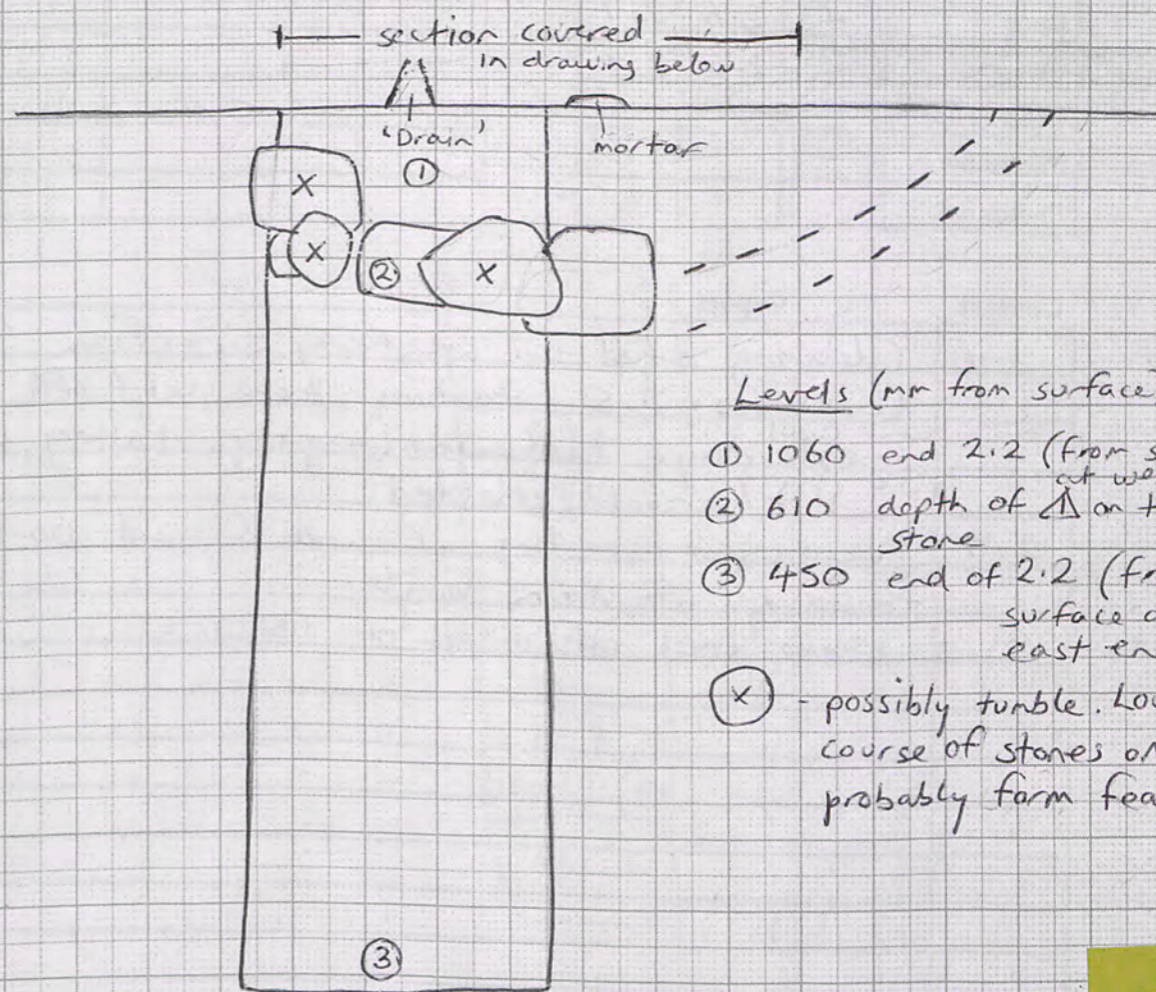 section covered
in drawing below
'Drain'
mortar
①
X
X
②
X
③
Levels (mm from surface
① 1060 end 2.2 (from s
at we
② 610 depth of on t
stone
③ 450 end of 2.2 (fr
surface
east en
X - possibly tumble. Lo
course of stones or
probably form fea